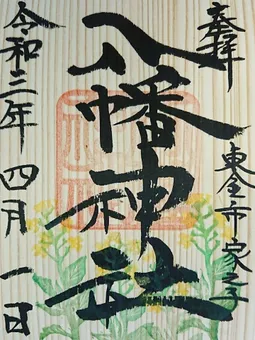 奉拝
東金市家之子
八幡神社
令和二年四月一日